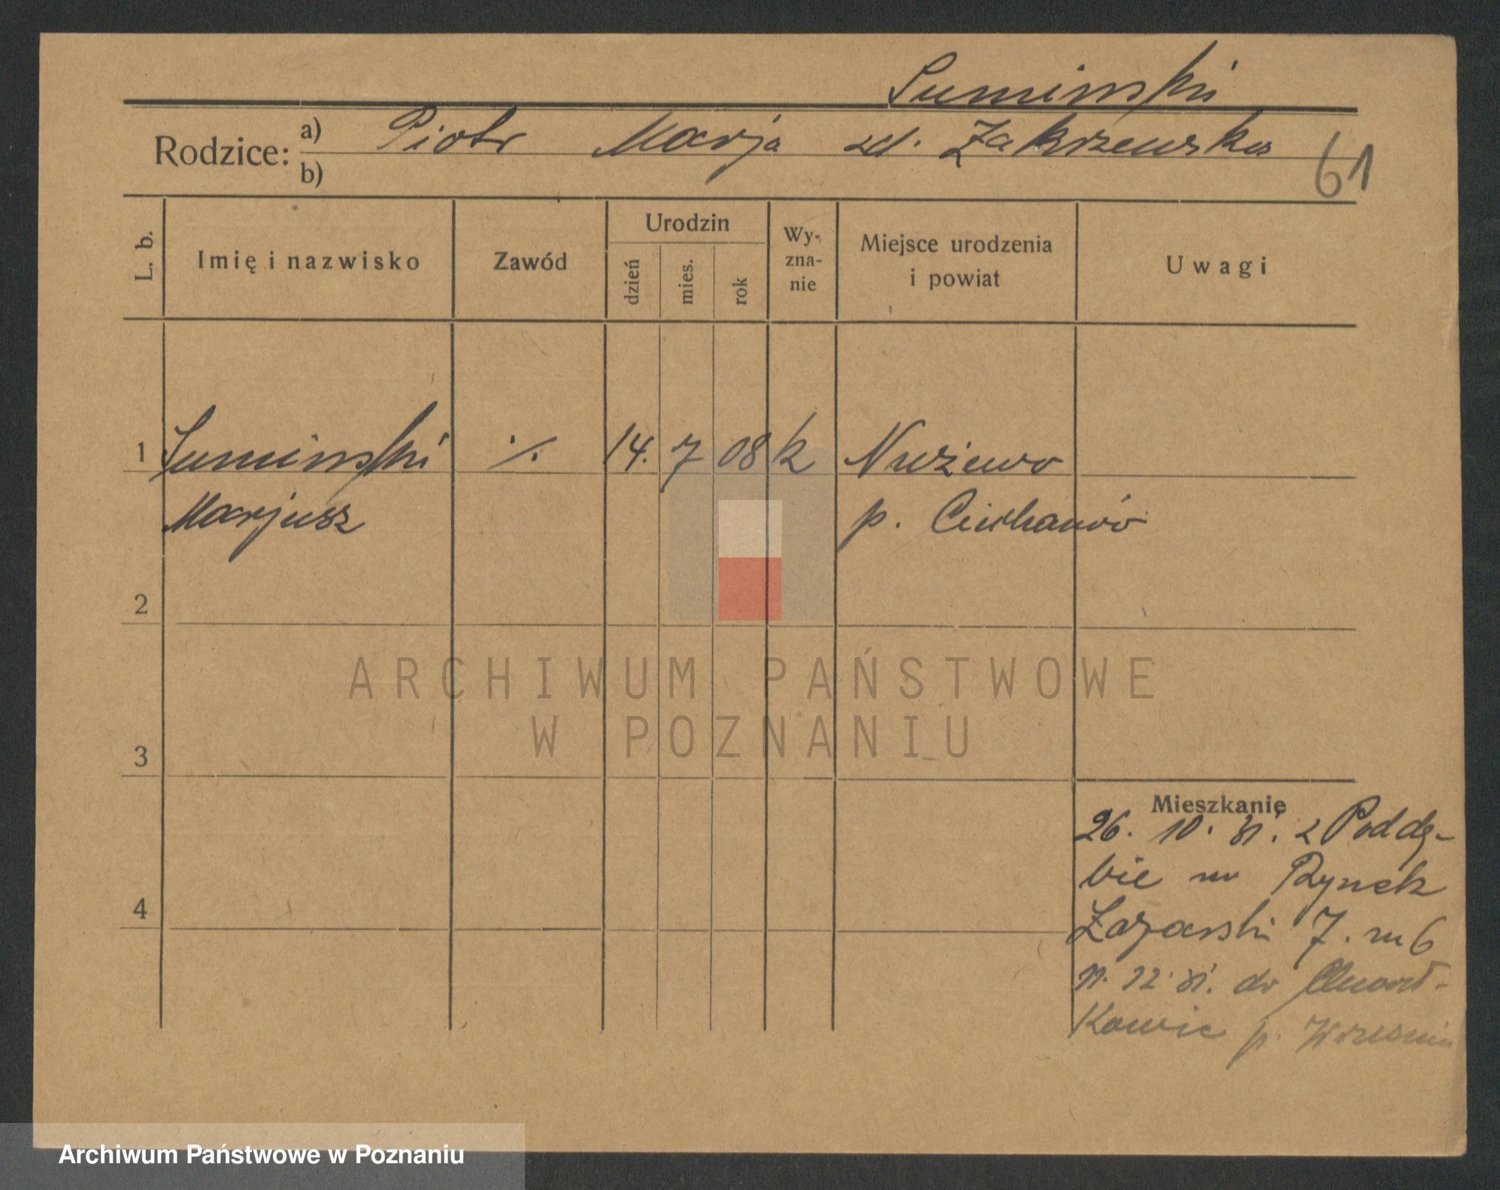 Suminski
Rodzice: a) Piotr Marja zd. Zakrzewska
b)
61
L. b.
Imię i nazwisko
Zawód
Urodzin
dzień
mies.
rok
Wy-
zna-
nie
Miejsce urodzenia
i powiat
Uwagi
1 Suminski ./. 14. 7 08 k Nużewo
Marjusz p. Ciechanów
2
3
4
Mieszkanie
26. 10. 31. z Poddę-
bic na Rynek
Łazarski 7. m 6
11. 12. 31. do
p. Września
ARCHIWUM PAŃSTWOWE
W POZNANIU
Archiwum Państwowe w Poznaniu